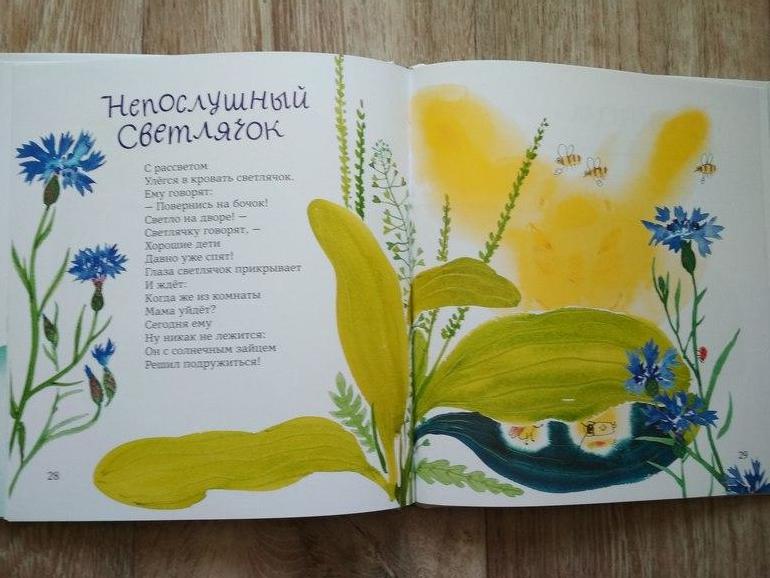 Непослушный
Светлячок
С рассветом
Улёгся в кровать светлячок.
Ему говорят:
— Повернись на бочок!
Светло на дворе! —
Светлячку говорят, —
Хорошие дети
Давно уже спят!
Глаза светлячок прикрывает
И ждёт:
Когда же из комнаты
Мама уйдёт?
Сегодня ему
Ну никак не лежится:
Он с солнечным зайцем
Решил подружиться!
28
29